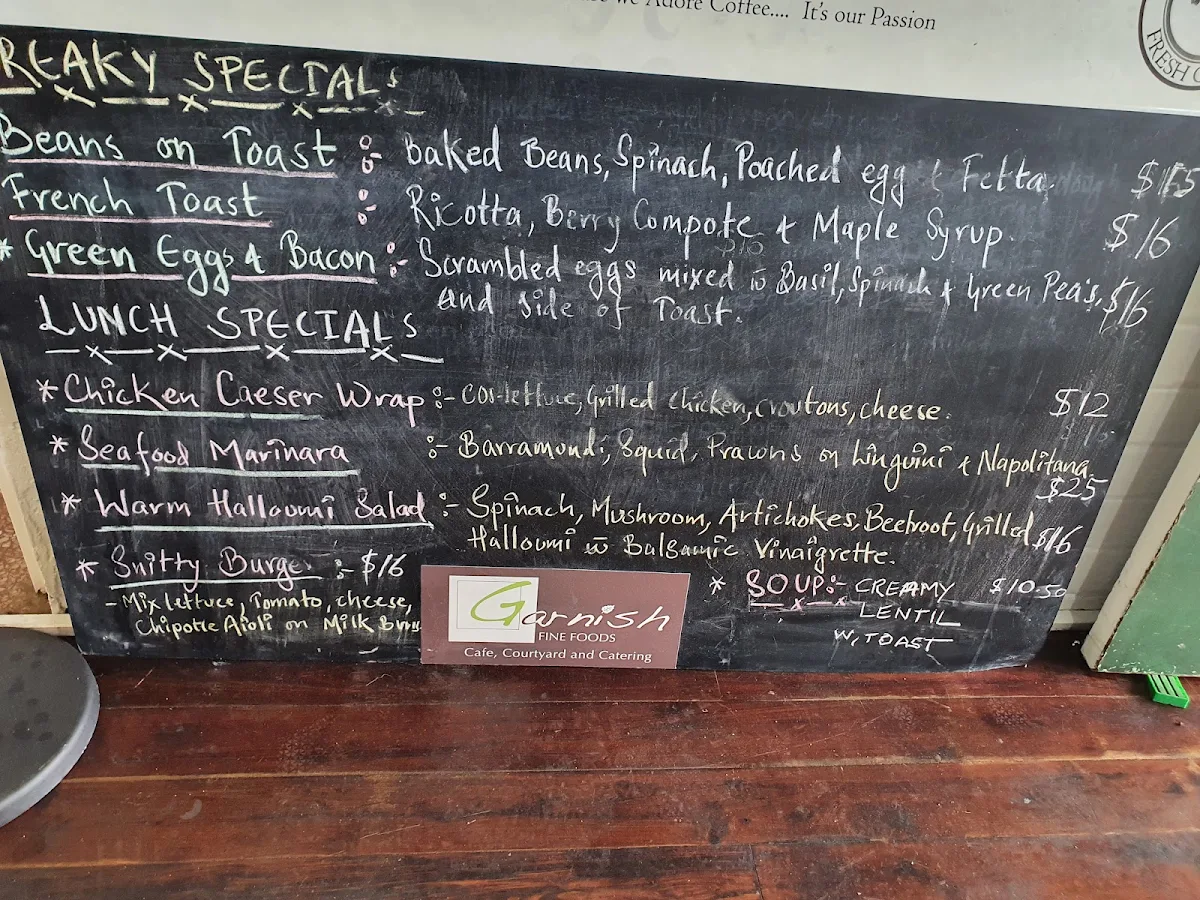 we Adore Coffee.... It's our Passion
FRESH
REAKY SPECIALS
Beans on Toast :- Baked Beans, Spinach, Poached egg & Fetta. $15
French Toast :- Ricotta, Berry Compote & Maple Syrup. $16
* Green Eggs & Bacon :- Scrambled eggs mixed w Basil, Spinach & Green Peas, $16
and side of Toast.
LUNCH SPECIALS
* Chicken Caeser Wrap :- Cos-lettuce, Grilled chicken, croutons, cheese. $12
* Seafood Marinara :- Barramundi, Squid, Prawns on Linguini & Napolitana
$25
* Warm Halloumi Salad :- Spinach, Mushroom, Artichokes, Beetroot, Grilled $16
Halloumi w Balsamic Vinaigrette.
* Snitty Burger :- $16
- Mix lettuce, Tomato, cheese,
Chipotle Aioli on Milk Buns
* SOUP :- CREAMY $10.50
LENTIL
W, TOAST
Garnish
FINE FOODS
Cafe, Courtyard and Catering